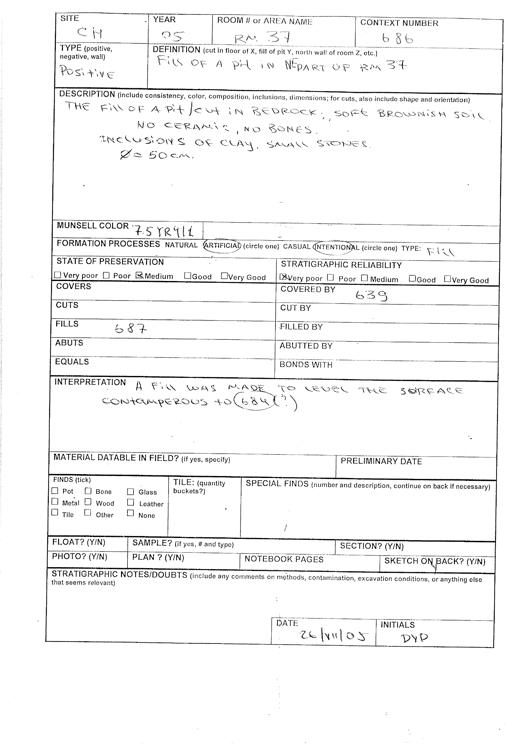 SITE YEAR ROOM # or AREA NAME CONTEXT NUMBER
CH 05 RM. 37 686
TYPE (positive, negative, wall) DEFINITION (cut in floor of X, fill of pit Y, north wall of room Z, etc.)
POSITIVE Fill OF A Pit IN NE PART OF RM 37
DESCRIPTION (include consistency, color, composition, inclusions, dimensions; for cuts, also include shape and orientation)
THE Fill OF A Pit/CUT IN BEDROCK; SOFT BROWNISH SOIL
NO CERAMIC, NO BONES.
INCLUSIONS OF CLAY, SMALL STONES.
Ø = 50 cm.
MUNSELL COLOR 7.5 YR 4/1
FORMATION PROCESSES NATURAL ARTIFICIAL (circle one) CASUAL INTENTIONAL (circle one) TYPE: Fill
STATE OF PRESERVATION STRATIGRAPHIC RELIABILITY
☐Very poor ☐ Poor ☒Medium ☐Good ☐Very Good ☒Very poor ☐ Poor ☐ Medium ☐Good ☐Very Good
COVERS COVERED BY 639
CUTS CUT BY
FILLS 687 FILLED BY
ABUTS ABUTTED BY
EQUALS BONDS WITH
INTERPRETATION A Fill WAS MADE TO LEVEL THE SURFACE
CONTAMPEROUS TO 684 (?)
MATERIAL DATABLE IN FIELD? (if yes, specify) PRELIMINARY DATE
FINDS (tick) TILE: (quantity buckets?) SPECIAL FINDS (number and description, continue on back if necessary)
☐ Pot ☐ Bone ☐ Glass
☐ Metal ☐ Wood ☐ Leather
☐ Tile ☐ Other ☐ None
/
FLOAT? (Y/N) SAMPLE? (if yes, # and type) SECTION? (Y/N)
PHOTO? (Y/N) PLAN ? (Y/N) NOTEBOOK PAGES SKETCH ON BACK? (Y/N)
STRATIGRAPHIC NOTES/DOUBTS (include any comments on methods, contamination, excavation conditions, or anything else
that seems relevant)
DATE INITIALS
26/VII/05 DYD